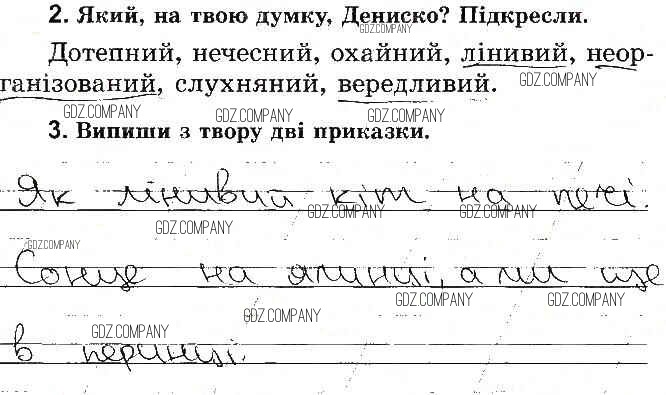 2. Який, на твою думку, Дениско? Підкресли.
GDZ.COMPANY
Дотепний, нечесний, охайний, лінивий, неор-
ганізований, слухняний, вередливий.
GDZ.COMPANY
GDZ.COMPANY GDZ.COMPANY GDZ.COMPANY
3. Випиши з твору дві приказки.
Як лінивий кіт на печі.
GDZ.COMPANY GDZ.COMPANY GDZ.COMPANY
GDZ.COMPANY
Сонце на ялинці, а ми ще
GDZ.COMPANY GDZ.COMPANY
GDZ.COMPANY GDZ.COMPANY
в перинці.